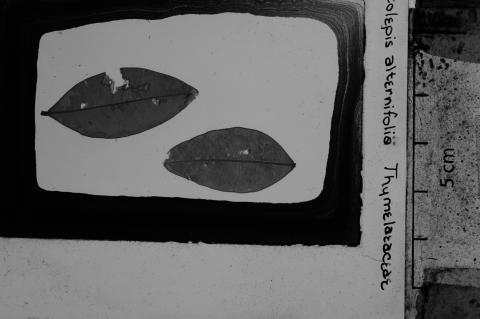 alternifolia Thymelaeaceae
5 cm